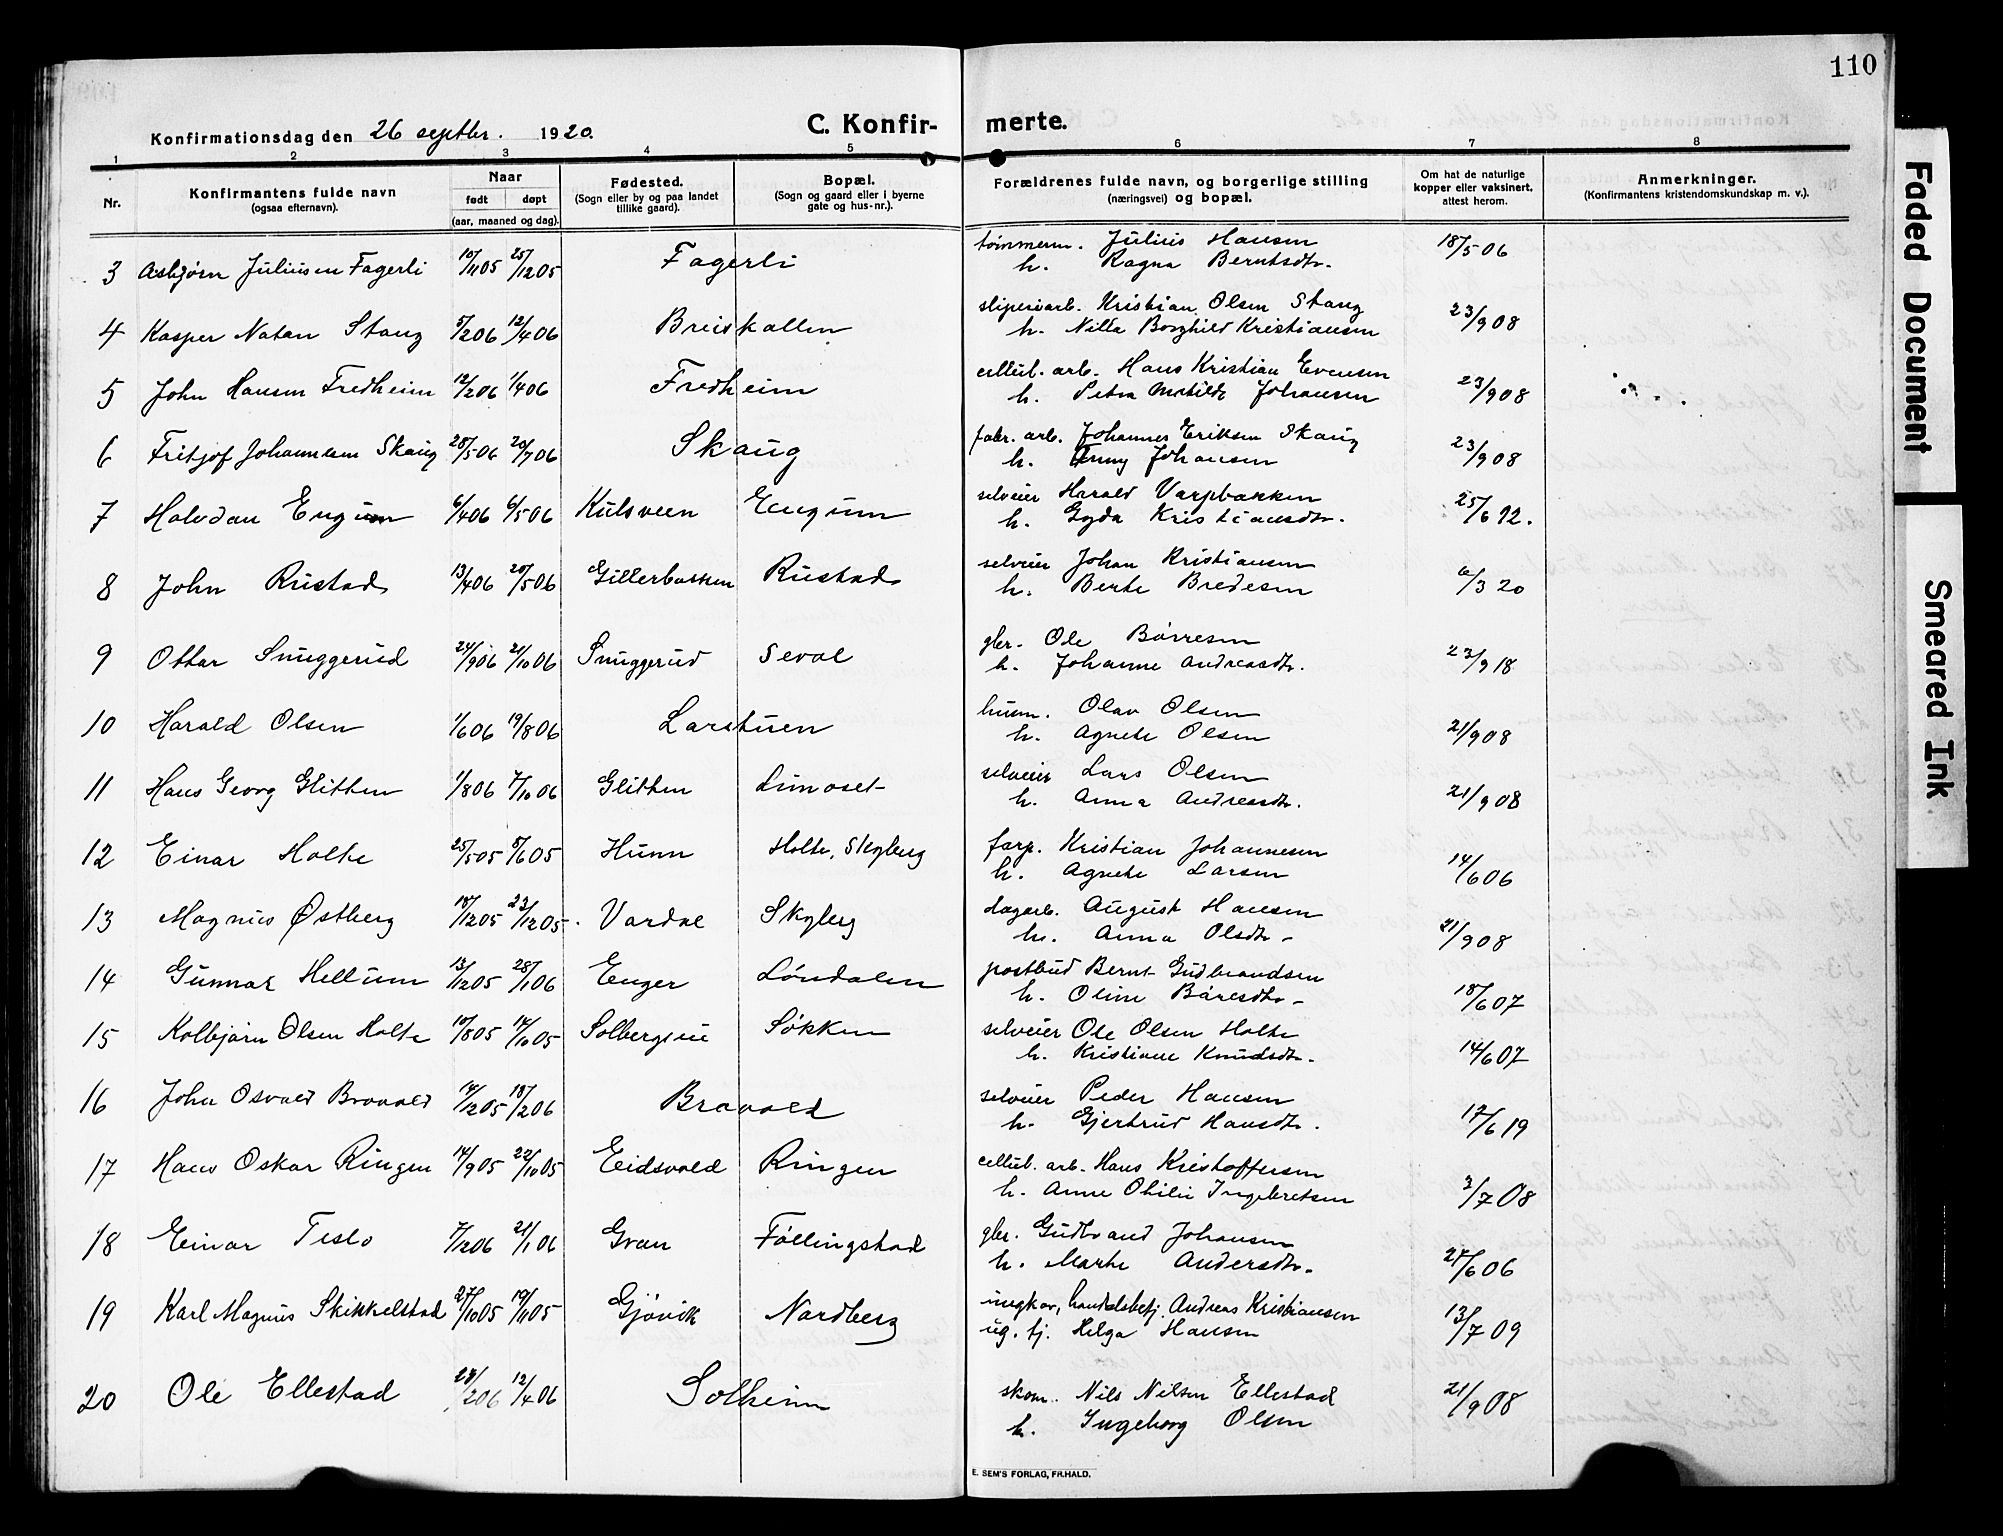 110
Konfirmationsdag den 26 septbr. 1920.
C. Konfir- merte.
1 2 3 4 5 6 7 8
Nr.
Konfirmantens fulde navn
(ogsaa efternavn).
Naar
født døpt
(aar, maaned og dag).
Fødested.
(Sogn eller by og paa landet
tillike gaard).
Bopæl.
(Sogn og gaard eller i byerne
gate og hus-nr.).
Forældrenes fulde navn, og borgerlige stilling
(næringsvei) og bopæl.
Om hat de naturlige
kopper eller vaksinert,
attest herom.
Anmerkninger.
(Konfirmantens kristendomskundskap m. v.).
3 Asbjørn Juliusen Fagerli 10/11 05 25/12 05 Fagerli tømmerm. Julius Hansen 18/5 06
h. Ragna Berntsdtr.
4 Kasper Natan Stang 5/2 06 12/4 06 Breiskallen sliperiarb. Kristian Olsen Stang 23/9 08
h. Nilla Borghild Kristiansen
5 John Hansen Fredheim 12/2 06 1/4 06 Fredheim cellul. arb. Hans Kristian Evensen 23/9 08
h. Petra Matilde Johansen
6 Fritjof Johannesen Skaug 28/5 06 20/7 06 Skaug fabr. arb. Johannes Eriksen Skaug 23/9 08
h. Anny Johansen
7 Halvdan Engum 6/4 06 6/5 06 Kulsveen Engum selveier Harald Varpbakken 25/6 12.
h. Gyda Kristiansdtr.
8 John Rustad 13/4 06 20/5 06 Gillerbakken Rustad selveier Johan Kristiansen 6/3 20
h. Berte Bredesen
9 Ottar Snuggerud 24/9 06 21/10 06 Snuggerud Seval gbr. Ole Børresen 23/9 18
h. Johanne Andreasdtr.
10 Harald Olsen 1/6 06 19/8 06 Larstuen husm. Olav Olsen 21/9 08
h. Agnete Olsen
11 Hans Georg Glitten 1/8 06 7/10 06 Glitten Limoset selveier Lars Olsen 21/9 08
h. Anna Andreasdtr.
12 Einar Holte 25/5 05 8/6 05 Hunn Holte, Skyberg farp. Kristian Johannesen 14/6 06
h. Agnete Larsen
13 Magnus Østberg 18/12 05 23/12 05. Vardal Skyberg dagarb. August Hansen 21/9 08
h. Anna Olsdtr.
14 Gunnar Hellum 13/12 05 28/1 06 Enger Løndalen postbud Bernt Gudbrandsen 18/6 07
h. Oline Båresdtr.
15 Kolbjørn Olsen Holte 10/8 05 14/10 05 Solbergseie Søkken selveier Ole Olsen Holte 14/6 07
h. Kristiane Knudsdtr.
16 John Osvald Bravald 14/12 05 18/2 06 Bravald selveier Peder Hansen 17/6 19
h. Gjertrud Hansdtr.
17 Hans Oskar Ringen 14/9 05 22/10 05 Eidsvold Ringen cellul. arb. Hans Kristoffersen 3/7 08
h. Anne Otilie Ingebretsen
18 Einar Teslo 7/12 06 21/1 06 Gran Føllingstad gbr. Gudbrand Johansen 27/6 06
h. Marte Andersdtr.
19 Karl Magnus Skikkelstad 27/10 05 19/11 05 Gjøvik Nordberg ungkar, handelsbetj. Andreas Kristiansen 13/7 09
ug. tj. Helga Hansen
20 Ole Ellestad 28/2 06 12/4 06 Solheim skom. Nils Nilsen Ellestad 21/9 08
h. Ingeborg Olsen
E. SEM'S FORLAG, FR.HALD.
Faded Document
Smeared Ink